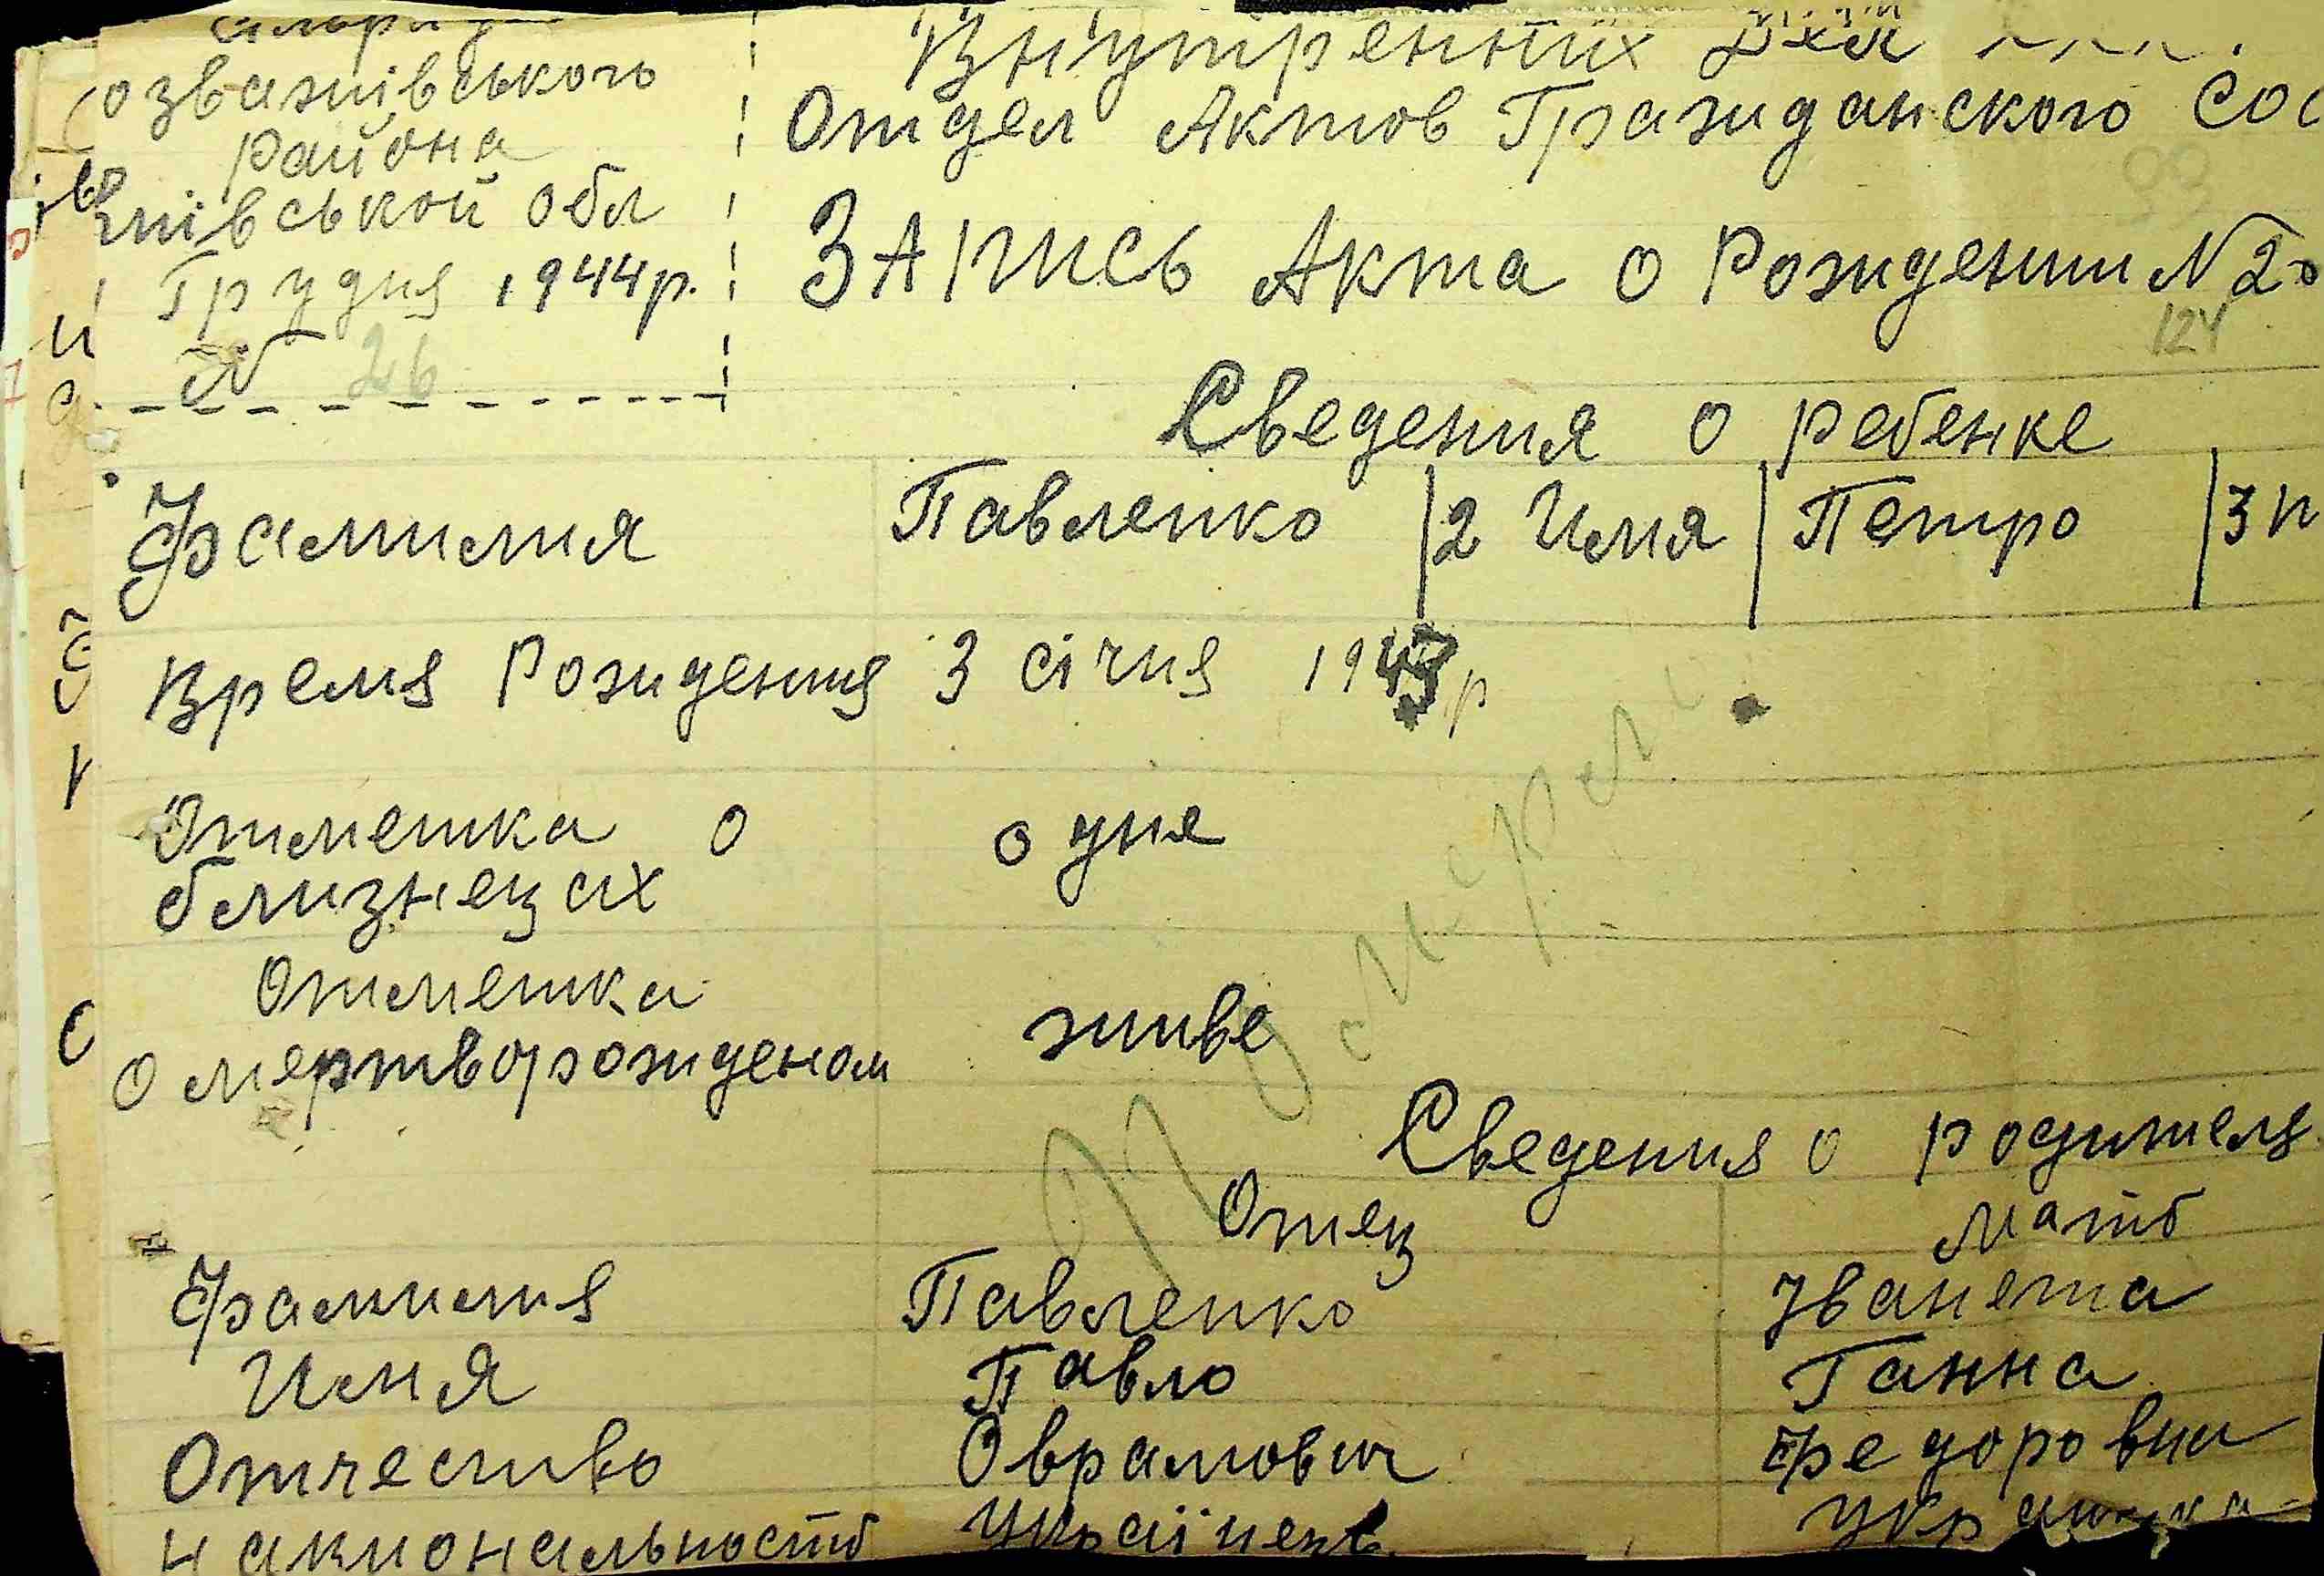 озважівського
района
Київської обл
Грудня 1944р.
№ 26
Внутренних Дел
Отдел Актов Гражданского Сос
Запись Акта о Рождении № 20
124
Сведения о ребенке
Фамилия Павленко 2 Имя Петро 3
Время Рождения 3 січня 194 р
Отметка о одне
близнецах
Отметка
о мертворожденом живе
Сведения о родителя
Отец мать
Фамилия Павленко Іванета
Имя Павло Ганна
Отчество Оврамович Федоровна
национальность Українець Українка